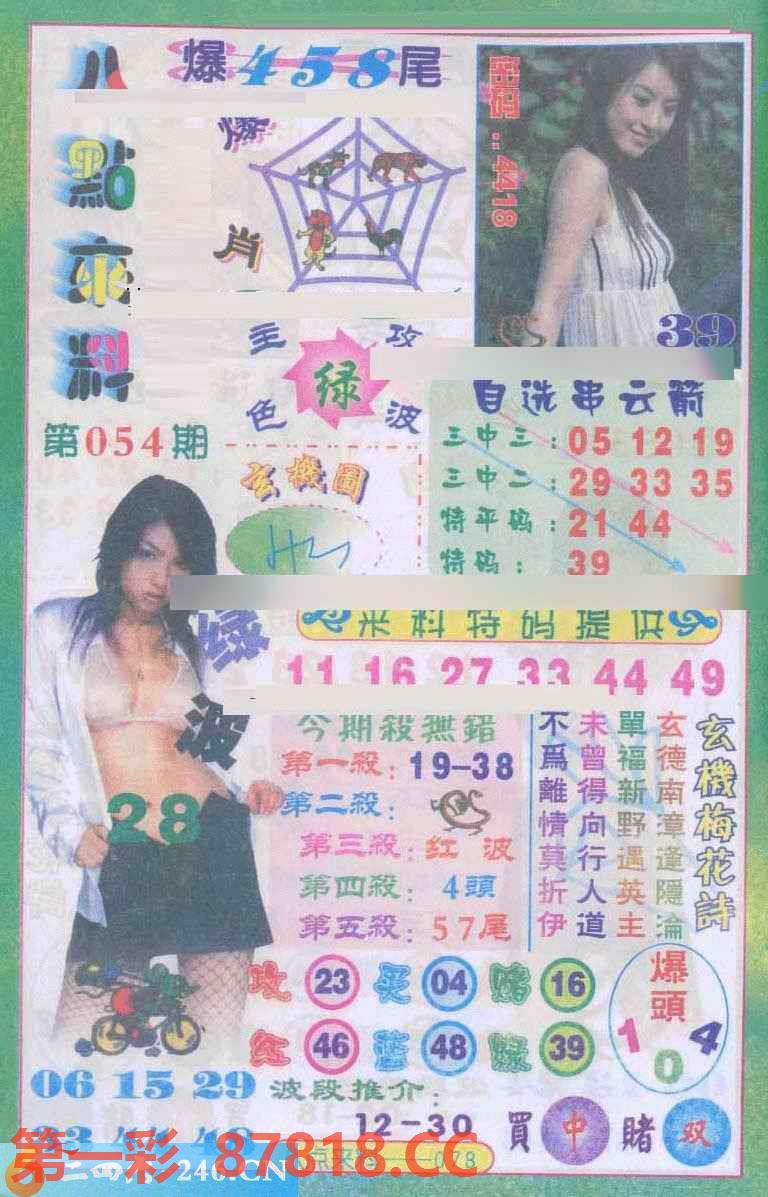 八點來料
爆458尾
爆
肖
主攻
绿
色波
第054期
玄機圖
39
自选串云箭
三中三：05 12 19
三中二：29 33 35
特平码：21 44
特码：39
绿波
28
来料特码提供
11 16 27 33 44 49
今期殺無錯
第一殺：19-38
第二殺：
第三殺：红波
第四殺：4頭
第五殺：57尾
玄機梅花詩
玄德南漳逢隱淪
單福新野遇英主
未曾得向行人道
不爲離情莫折伊
攻 23 买 04 赌 16
红 46 蓝 48 绿 39
爆頭
1 0 4
06 15 29
波段推介：
12-30
買中 賭双
第一彩 87818.CC
246.CN
078